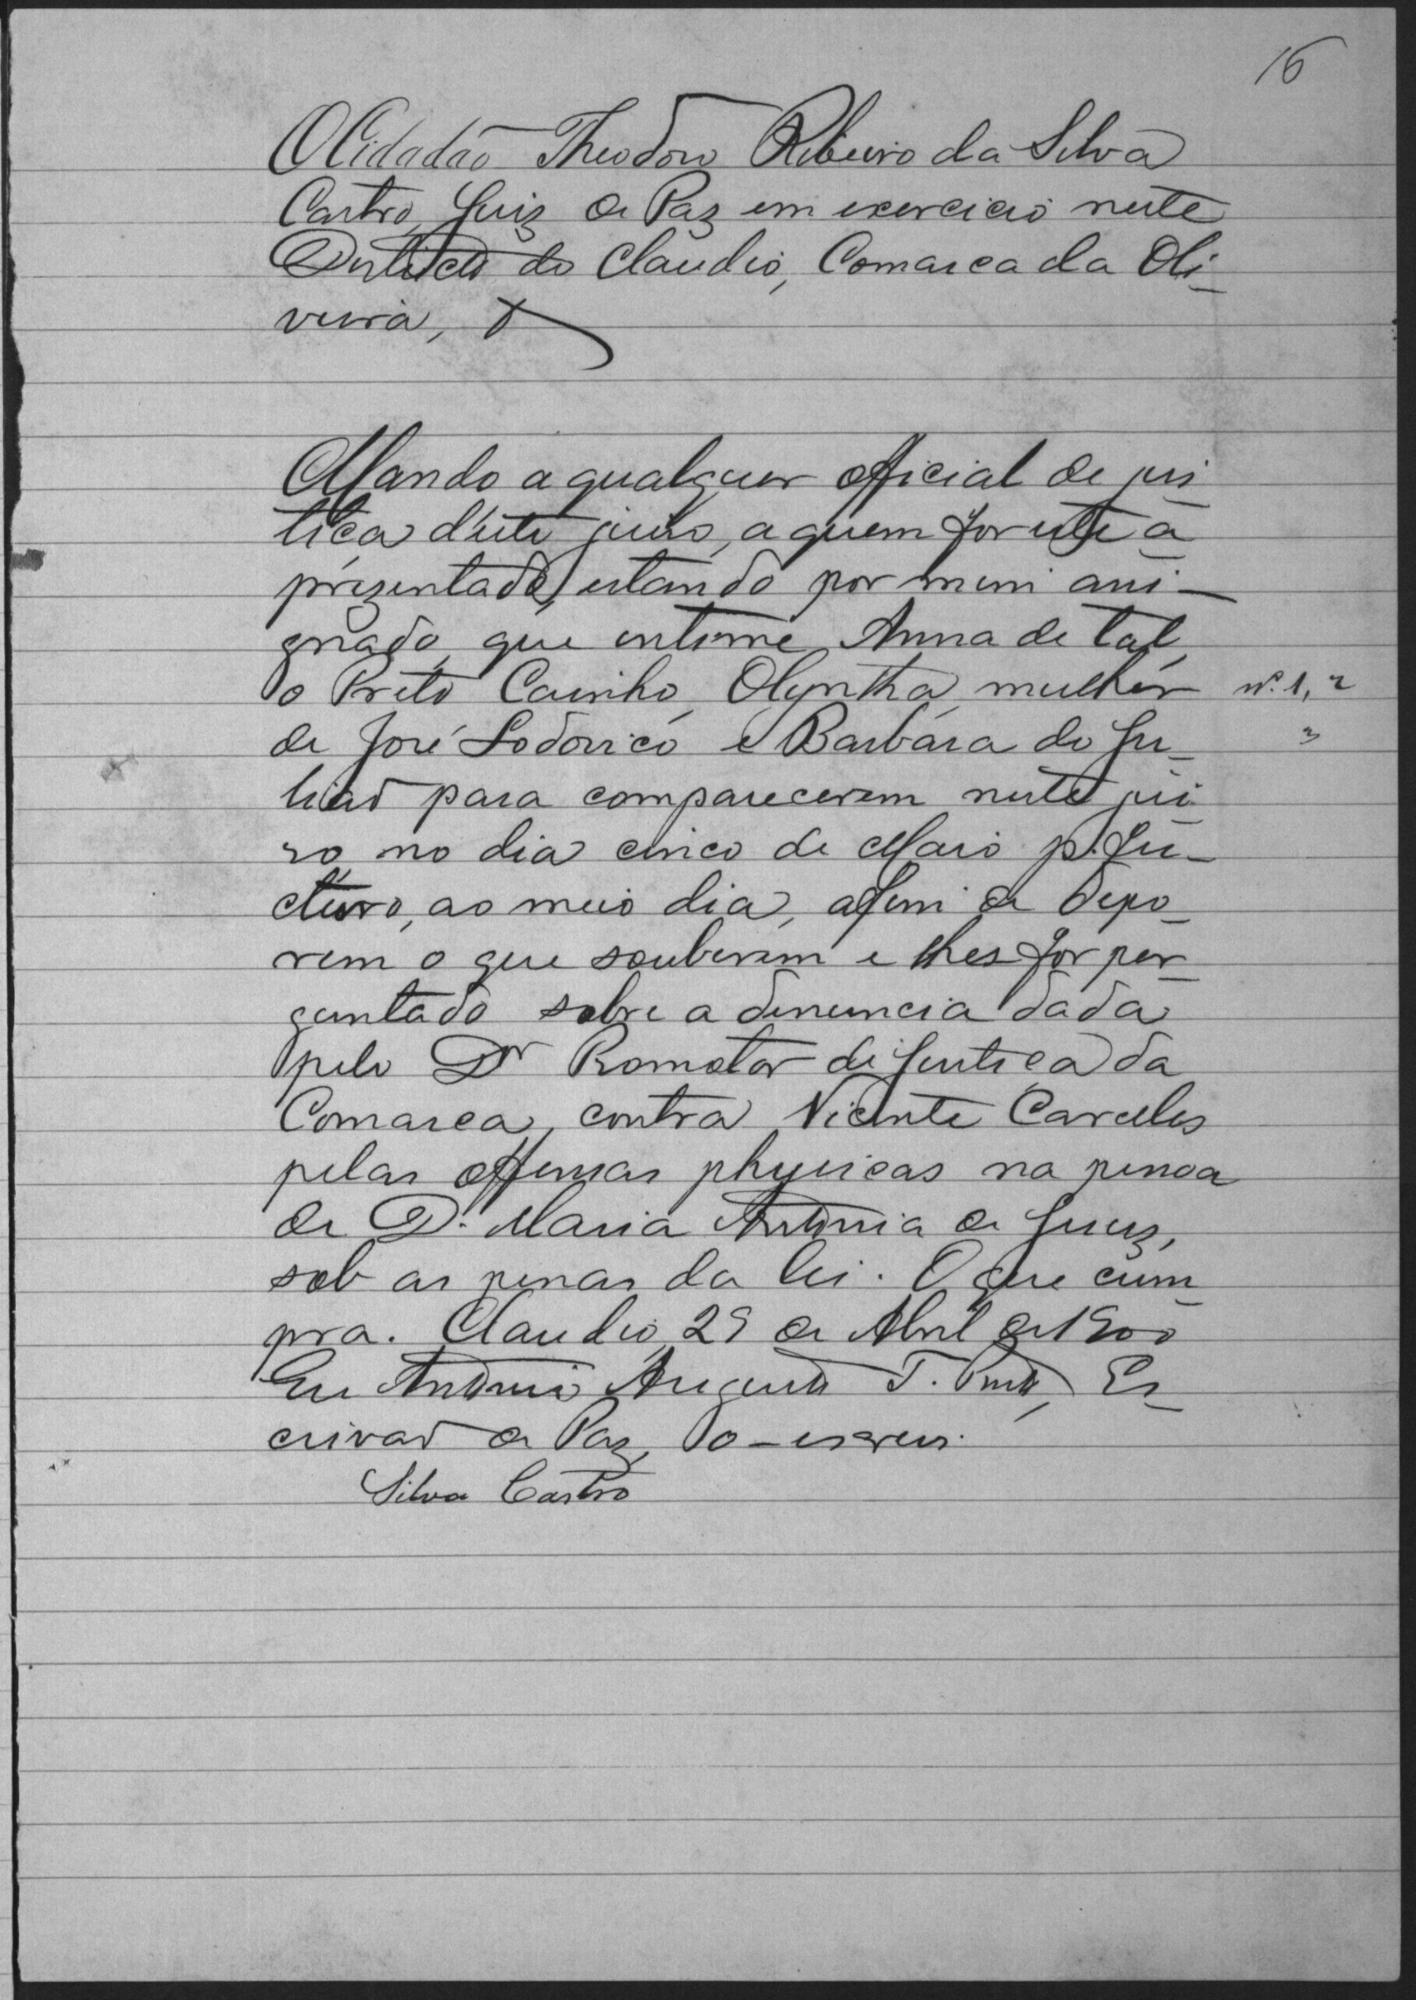 16
O Cidadão Theodoro Ribeiro da Silva
Castro, Juiz de Paz em exercicio neste
Districto do Claudio, Comarca da Oli-
veira, &
Mando a qualquer official de jus
tiça d'este juizo, a quem for este a
prezentado, estando por mim assi-
gnado, que intime Anna de tal,
o Preto Cainho, Olyntha, mulher nº. 1, 2
de José Lodovico e Barbara do Ju- 3
lião para comparecerem neste jui
zo, no dia cinco de Maio p. fu-
cturo, ao meio dia, afim de depo-
rem o que souberem e lhes for per-
guntado sobre a denuncia dada
pelo Dr Promotor de Justiça da
Comarca, contra Vicente Carceles
pelas offensas physicas na pessoa
de D. Maria Antonia de Jesus,
sob as penas da lei. O que cum-
pra. Claudio, 29 de Abril de 1900
Eu Antonio Augusto T. , Es-
crivão de Paz, o-escrevi.
Silva Castro